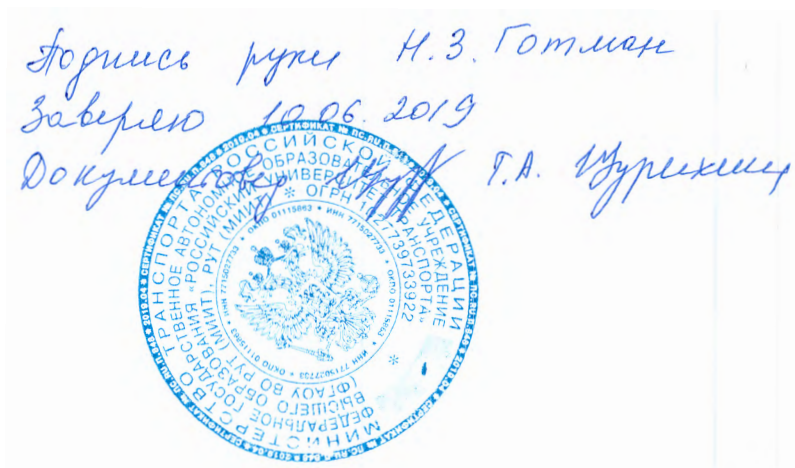 Подпись руки Н.З. Готман
Заверяю 10.06.2019
Документовед Т.А.
* СЕРТИФИКАТ № ПС.RU.П.848 * 2019.04
МИНИСТЕРСТВО ТРАНСПОРТА РОССИЙСКОЙ ФЕДЕРАЦИИ
ФЕДЕРАЛЬНОЕ ГОСУДАРСТВЕННОЕ АВТОНОМНОЕ ОБРАЗОВАТЕЛЬНОЕ УЧРЕЖДЕНИЕ
ВЫСШЕГО ОБРАЗОВАНИЯ "РОССИЙСКИЙ УНИВЕРСИТЕТ ТРАНСПОРТА"
(ФГАОУ ВО РУТ (МИИТ), РУТ (МИИТ) * ОГРН 1027739733922 *
* ОКПО 01115863 * ИНН 7715027733